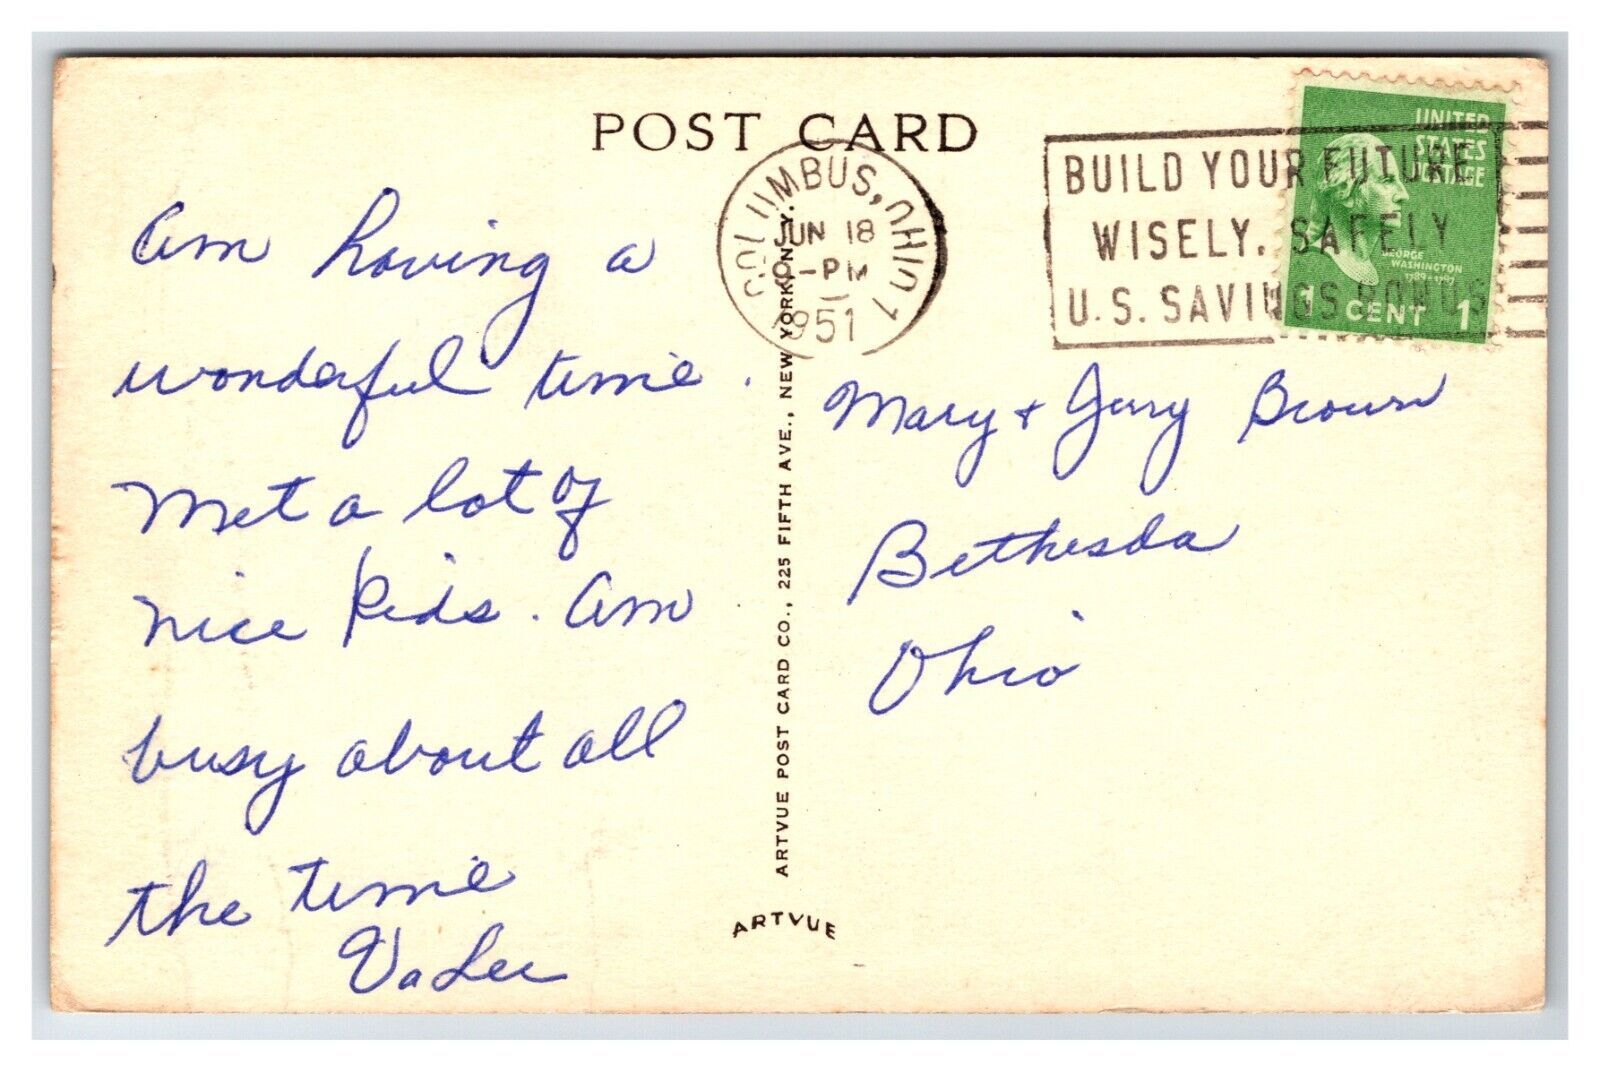 POST CARD
COLUMBUS, OHIO 1
JUN 18
-PM
1951
BUILD YOUR FUTURE
WISELY, SAFELY
U.S. SAVINGS BONDS
UNITED
STATES
POSTAGE
GEORGE
WASHINGTON
1 CENT 1
am having a
wonderful time.
Met a lot of
nice kids. am
busy about all
the time
VaLee
Mary + Jerry Brown
Bethesda
Ohio
ARTVUE POST CARD CO., 225 FIFTH AVE., NEW YORK, N.Y.
ARTVUE